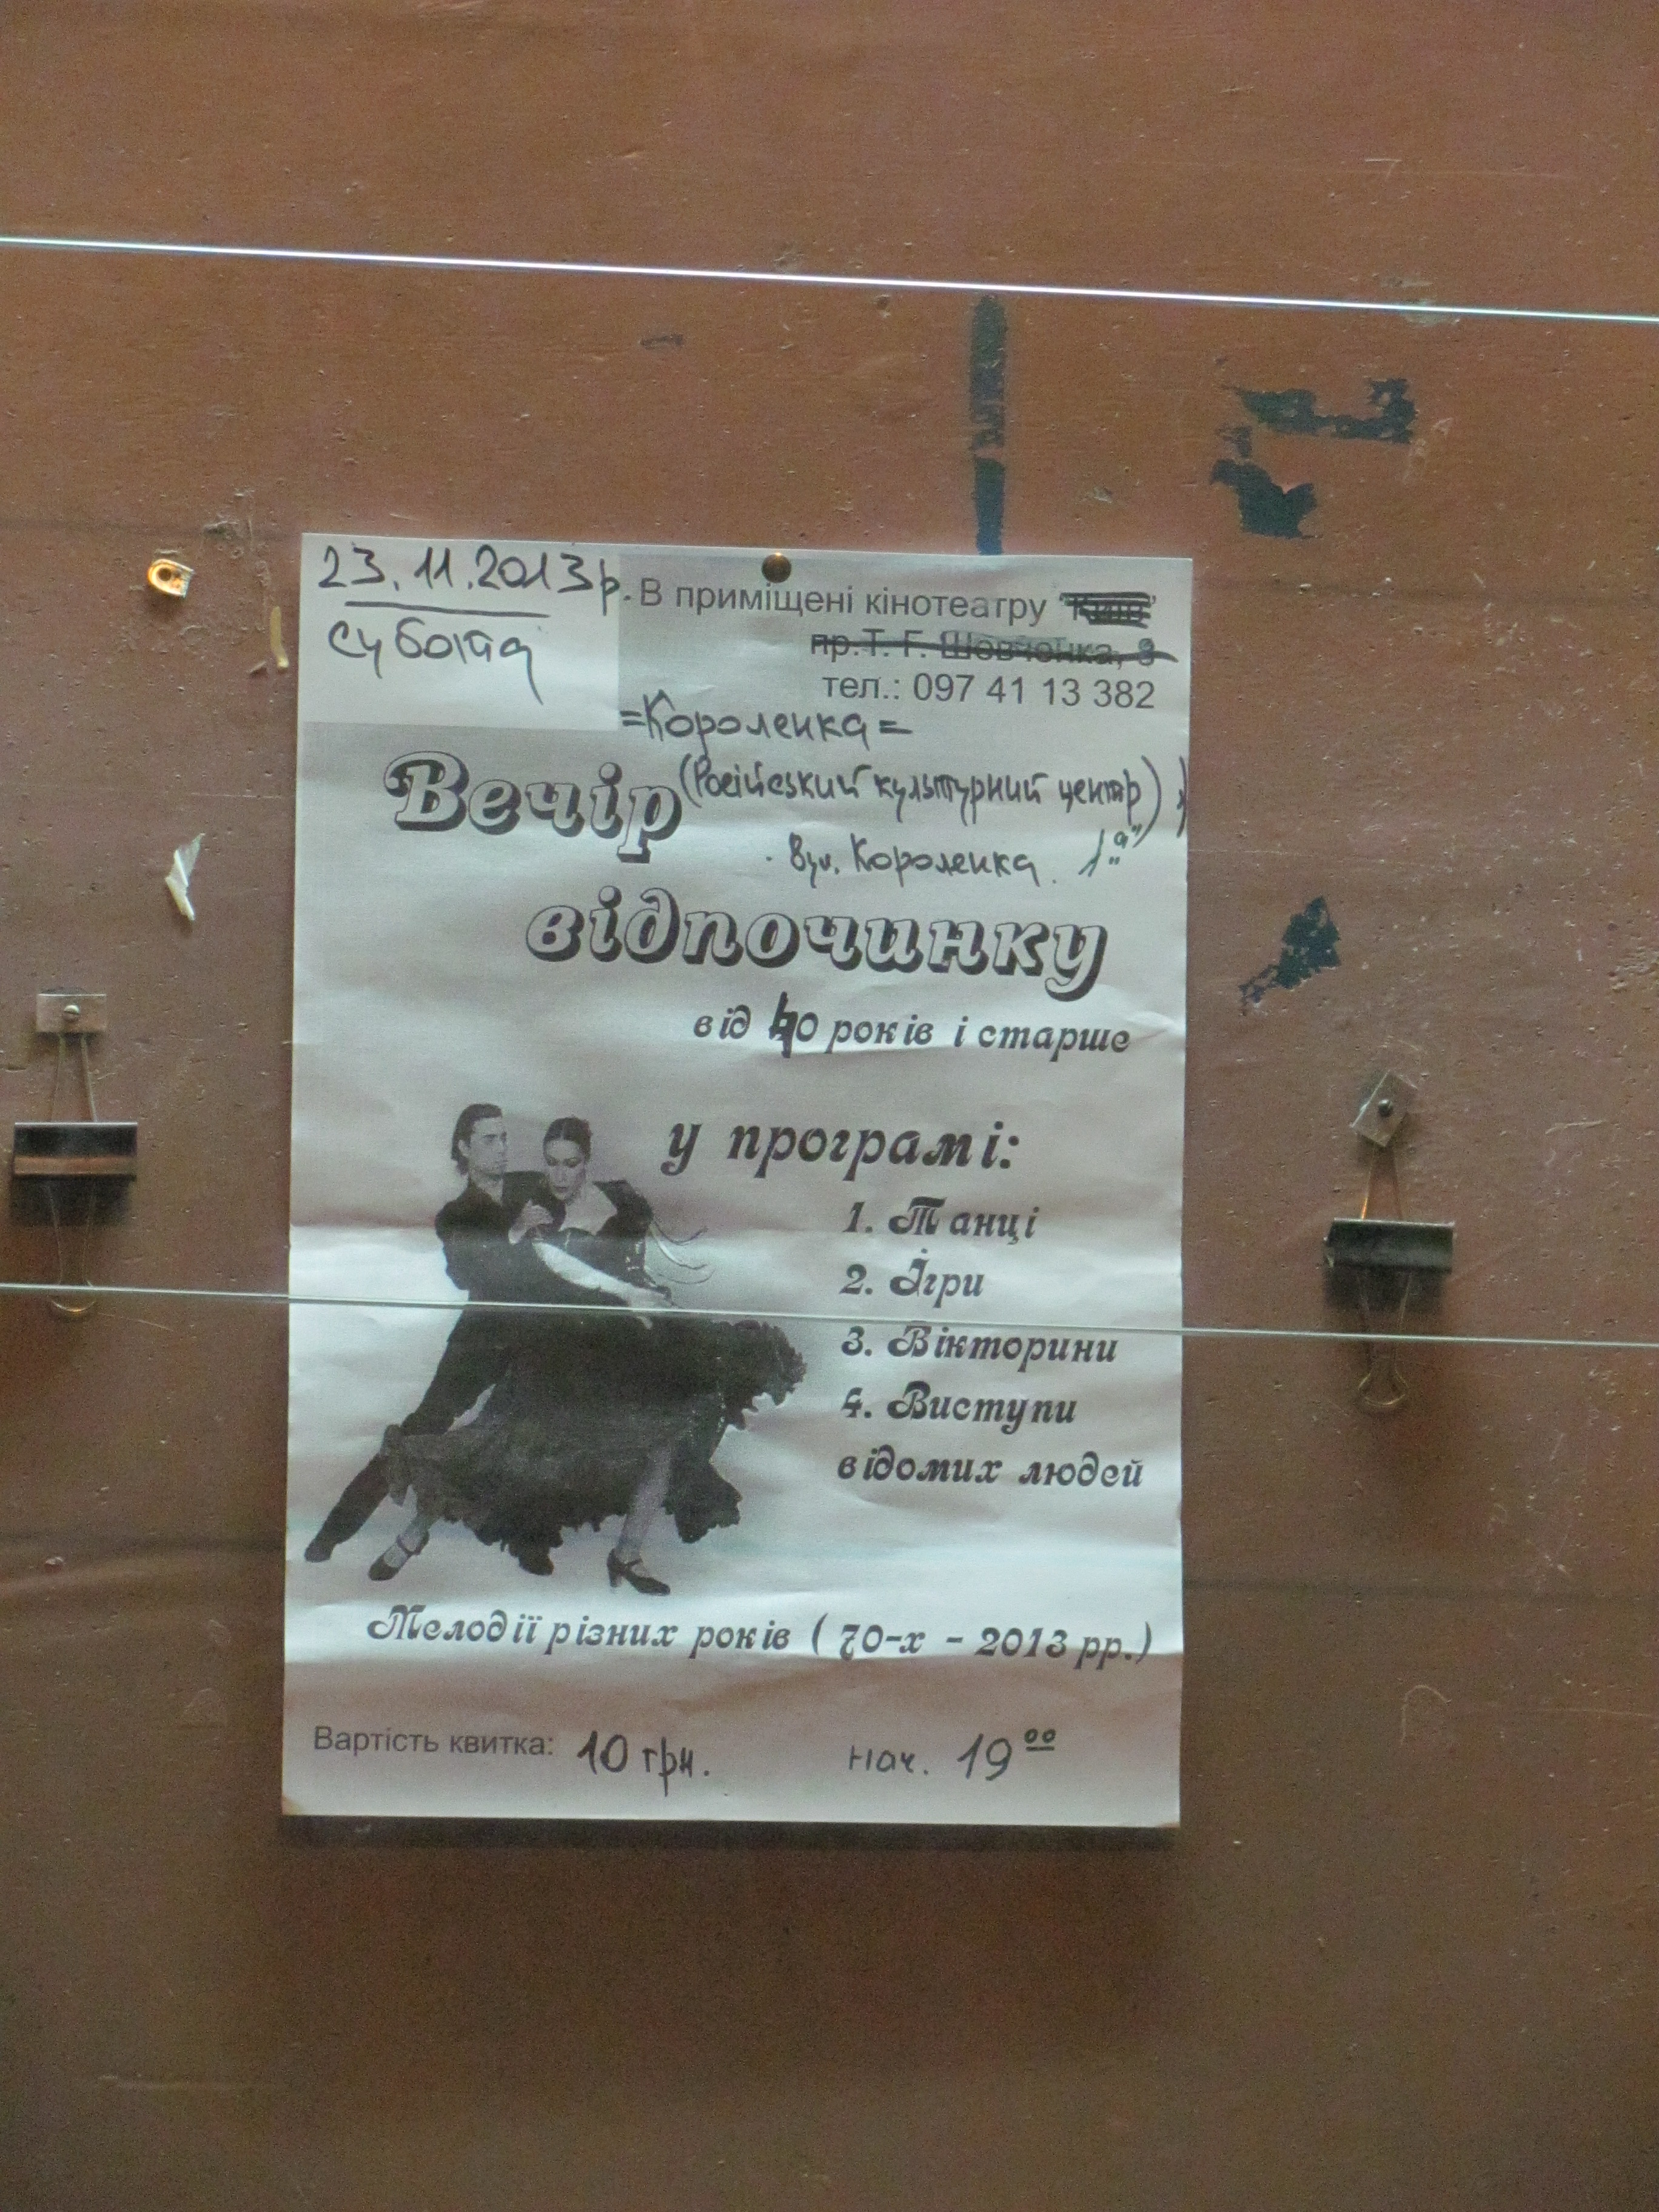 23.11.2013р.
субота
В приміщені кінотеатру "Київ"
пр.Т. Г. Шевченка, 8
тел.: 097 41 13 382
=Короленка=
Вечір
(Російський культурний центр)
вул. Короленка 1 "а"
відпочинку
від 40 років і старше
у програмі:
1. Танці
2. Ігри
3. Вікторини
4. Виступи
відомих людей
Мелодії різних років ( 70-х - 2013 рр.)
Вартість квитка: 10 грн. нач. 19 00